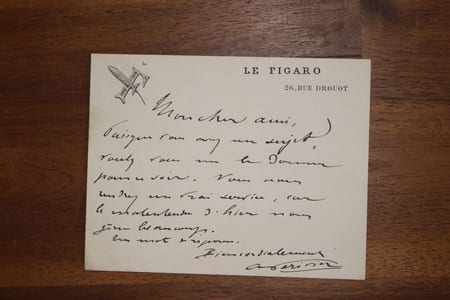 LE FIGARO
26, RUE DROUOT
Mon cher ami,
Puisque vous avez un sujet,
voulez vous me le donner
pour ce soir. Vous nous
rendrez un vrai service, car
le malentendu d'hier nous
gêne beaucoup.
Un mot de réponse.
Bien cordialement
A Perivier